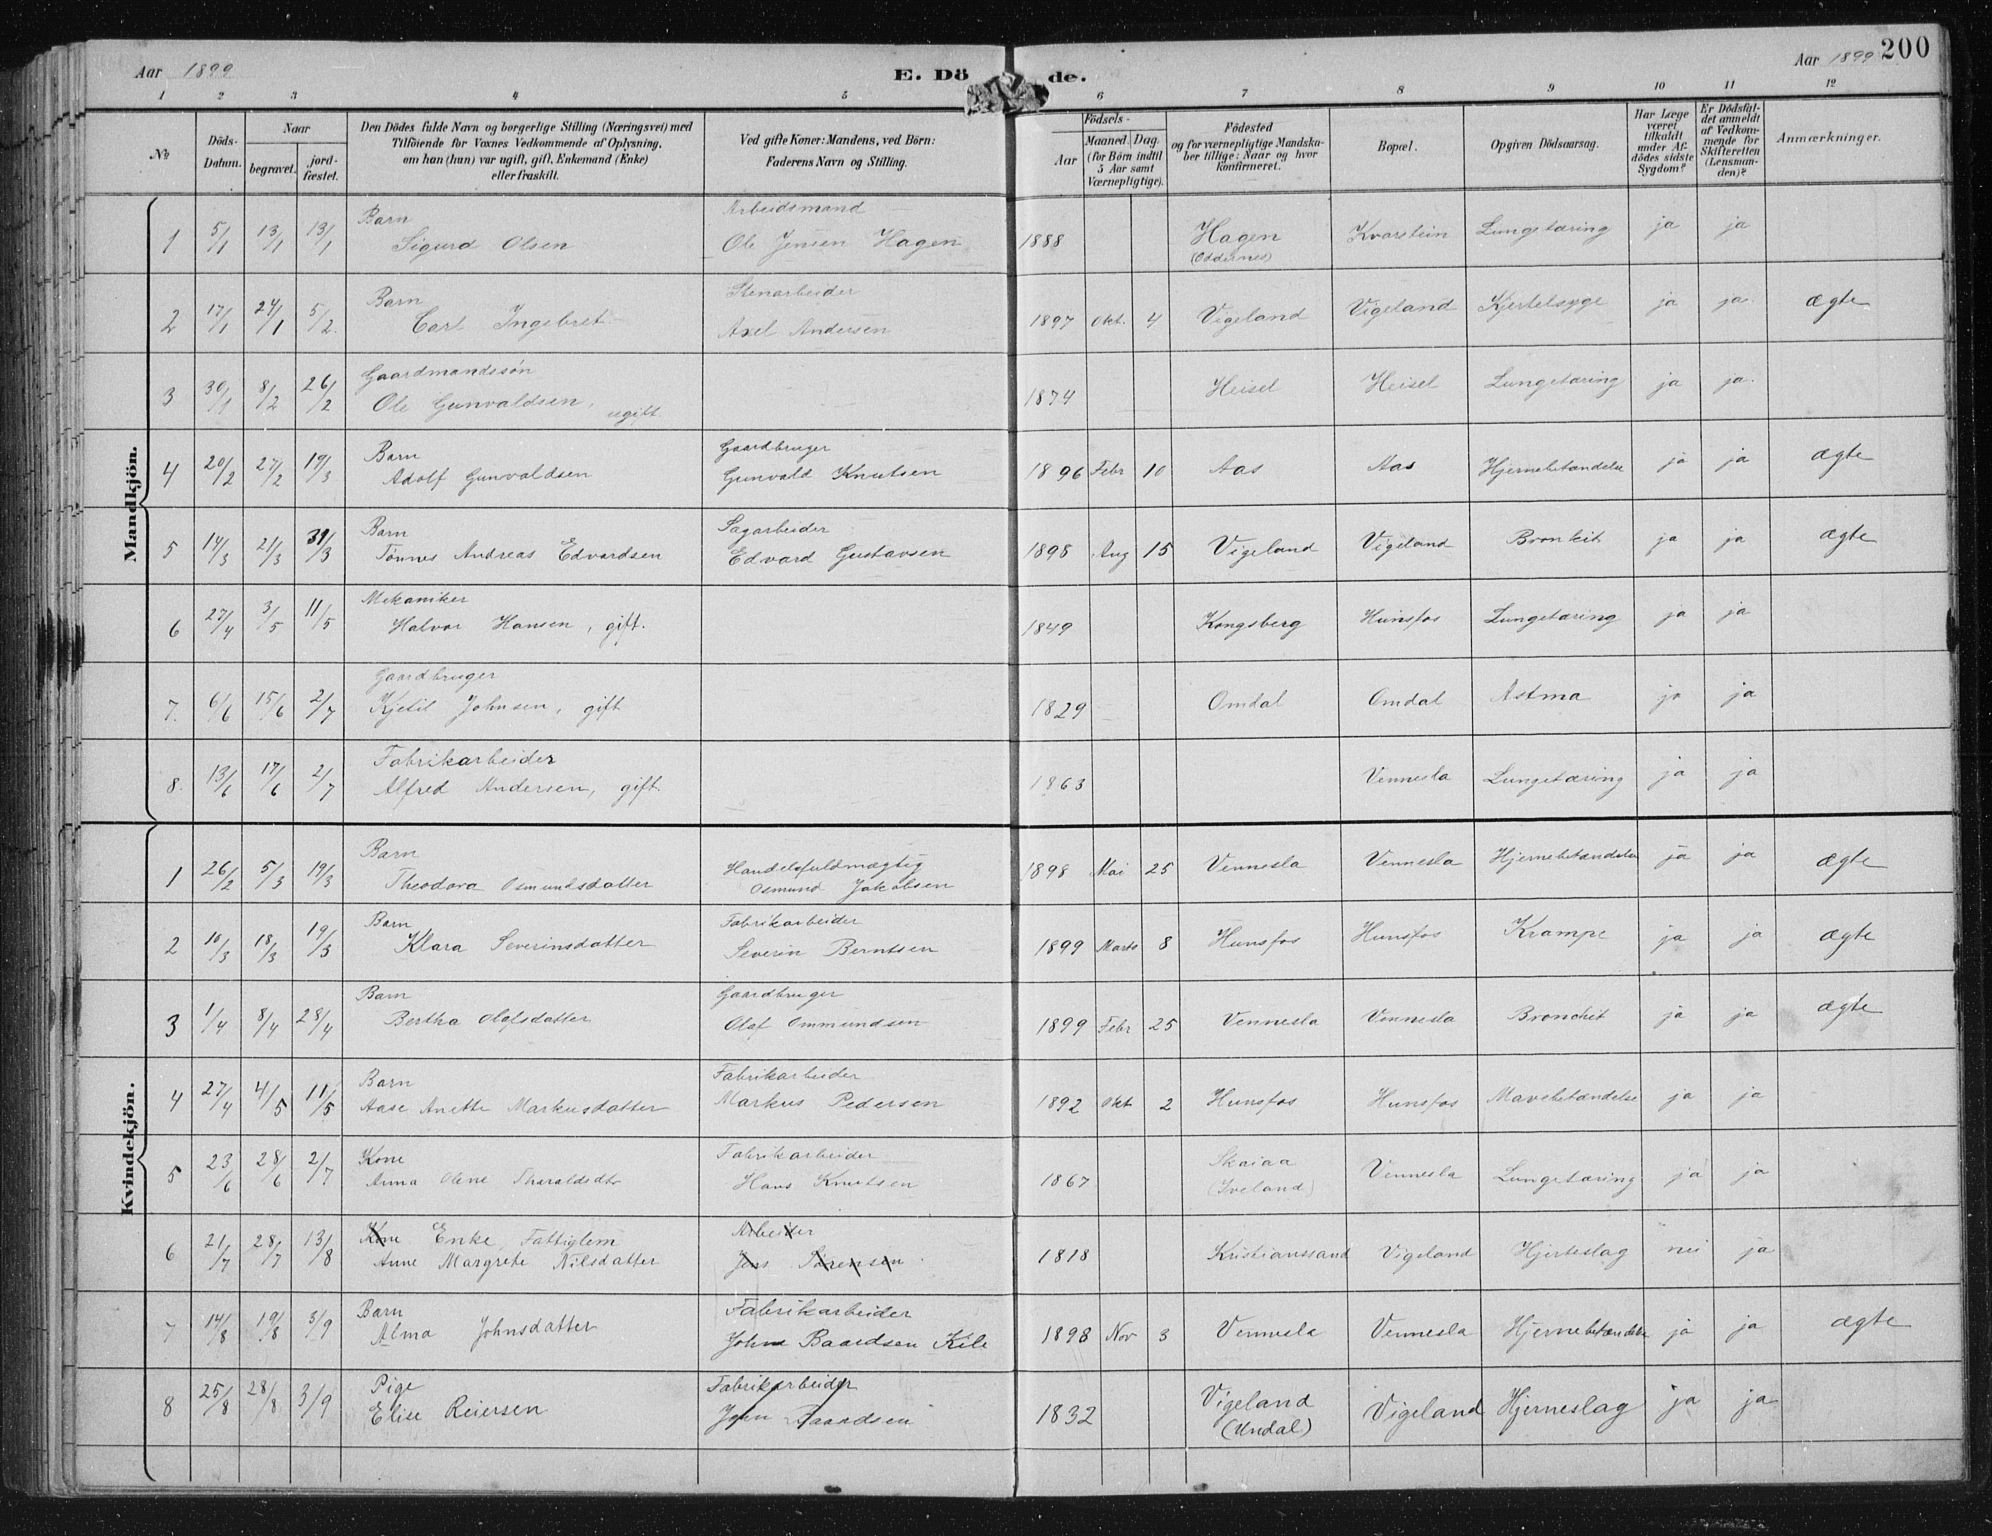 Aar 1899
E. Dö de.
Aar 1899 200
1 2 3 4 5 6 7 8 9 10 11 12
No
Döds-
Datum.
Naar
begravet.
jord-
fæstet.
Den Dödes fulde Navn og borgerlige Stilling (Næringsvei) med
Tilföiende for Voxnes Vedkommende af Oplysning,
om han (hun) var ugift, gift, Enkemand (Enke)
eller fraskilt.
Ved gifte Koner: Mandens, ved Börn:
Faderens Navn og Stilling.
Födsels-
Aar
Maaned. Dag.
(for Börn indtil
5 Aar samt
Værnepligtige).
Födested
og for værnepligtige Mandska-
ber tillige: Naar og hvor
konfirmeret.
Bopæl.
Opgiven Dödsaarsag.
Har Læge
været
tilkaldt
under Af-
dödes sidste
Sygdom?
Er Dödsfal-
det anmeldt
af Vedkom-
mende for
Skifteretten
(Lensman-
den)?
Anmærkninger.
Mandkjön.
Barn Arbeidsmand
1 5/1 13/1 13/1 Sigurd Olsen Ole Jensen Hagen 1888 Hagen Kvarstein Lungetæring ja ja
(Oddernes)
Barn Stenarbeider
2 17/1 24/1 5/2 Carl Ingebret Axel Andersen 1897 Okt. 4 Vigeland Vigeland Kjertelsyge ja ja ægte
Gaardmandssøn
3 30/1 8/2 26/2 Ole Gunvaldsen, ugift 1874 Heisel Heisel Lungetæring ja ja.
Barn Gaardbruger
4 20/2 27/2 19/3 Adolf Gunvaldsen Gunvald Knutsen 1896 Febr 10 Aas Aas Hjernebetændelse ja ja ægte
Barn Sagarbeider
5 14/3 21/3 31/3 Tønnes Andreas Edvardsen Edvard Gustavsen 1898 Aug 15 Vigeland Vigeland Bronkit ja ja ægte
Mekaniker
6 27/4 3/5 11/5 Halvor Hansen, gift. 1849 Kongsberg Hunsfos Lungetæring ja ja
Gaardbruger
7. 6/6 15/6 2/7 Kjetil Johnsen, gift 1829 Omdal Omdal Astma ja ja
Fabrikarbeider
8. 13/6 17/6 2/7 Alfred Andersen, gift. 1863 Vennesla Lungetæring ja ja
Kvindekjön.
Barn Handelsfuldmægtig
1 26/2 5/3 19/3 Theodora Osmundsdatter Osmund Jakobsen 1898 Mai 25 Vennesla Vennesla Hjernebetændelse ja ja ægte
Barn Fabrikarbeider
2 10/3 18/3 19/3 Klara Severinsdatter Severin Berntsen 1899 Marts 8 Hunsfos Hunsfos Krampe ja ja ægte
Barn Gaardbruger
3 1/4 8/4 28/4 Bertha Olafsdatter Olaf Ommundsen 1899 Febr 25 Vennesla Vennesla Bronchit ja ja ægte
Barn Fabrikarbeider
4 27/4 4/5 11/5 Aase Anette Markusdatter Markus Pedersen 1892 Okt 2 Hunsfos Hunsfos Mavebetændelse ja ja
Kone Fabrikarbeider
5 23/6 28/6 2/7 Anna Olene Tharaldsdtr Hans Knutsen 1867 Skaiaa Vennesla Lungetæring ja ja
(Iveland)
Kone Enke, Fattiglem Arbeider
6 21/7 28/7 13/8 Anne Margrete Nilsdatter Jens Sørensen 1818 Kristianssand Vigeland Hjerteslag nei ja
Barn Fabrikarbeider
7 14/8 19/8 3/9 Alma Johnsdatter John Baardsen Kile 1898 Nov 3 Vennesla Vennesla Hjernebetændelse ja ja ægte
Pige Fabrikarbeider
8 25/8 28/8 3/9 Elise Reiersen John Baardsen 1832 Vigeland Vigeland Hjerneslag ja ja
(Undal)